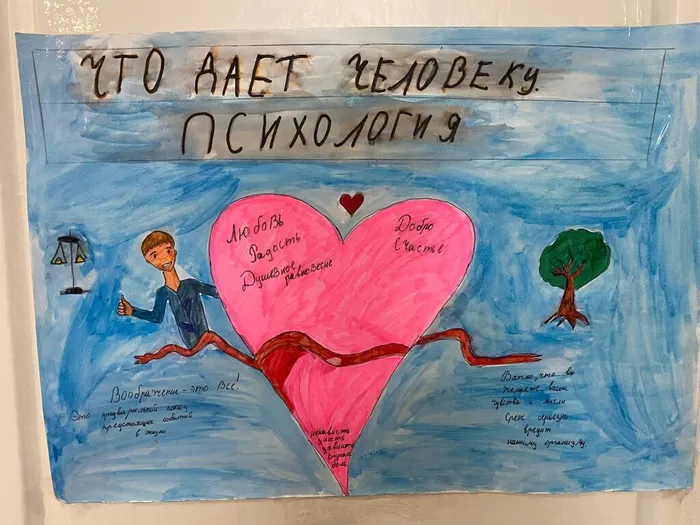 ЧТО ДАЕТ ЧЕЛОВЕКУ.
ПСИХОЛОГИЯ
Любовь
Радость
Душевное
равновесие
Добро
Счастье
Воображение - это Все!
Это предварительный показ
предстоящих событий
в жизни
ненависть
злость
зависть
боль
Важно, что вы
ваши
чувства и мысли
Стресс серьезно
вредит
нашему организму.